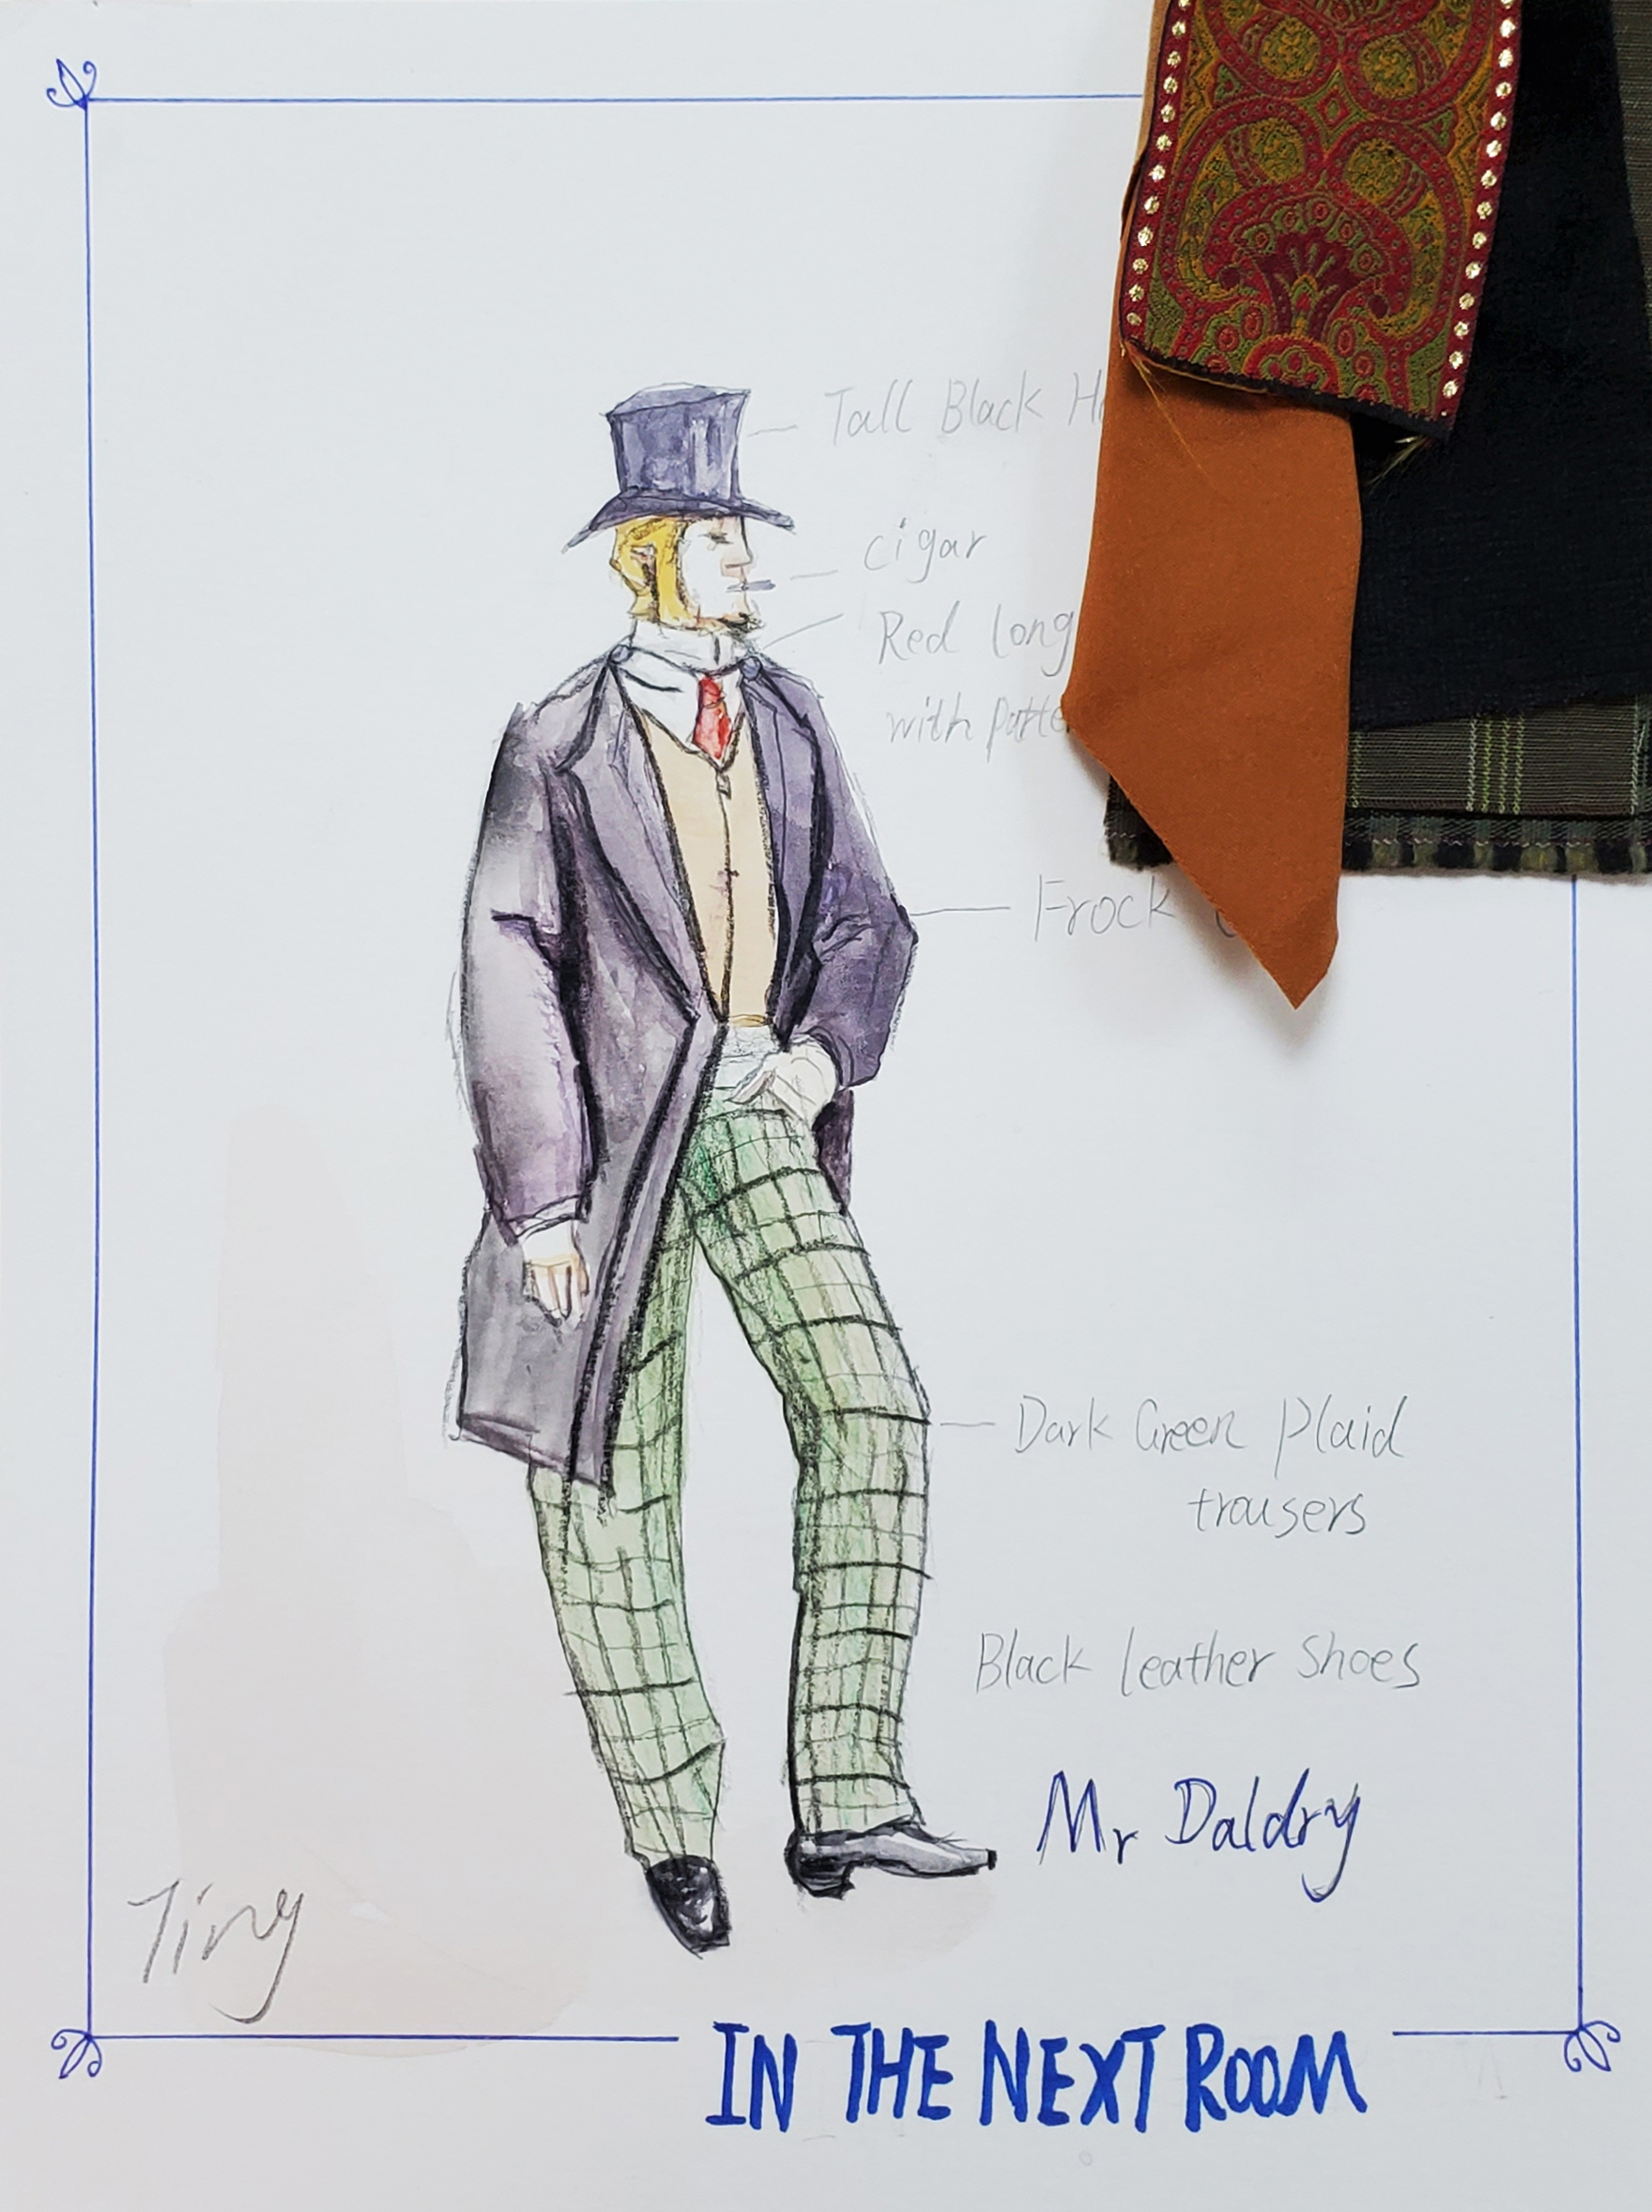 Tall Black
cigar
Red long
with
Frock
Dark Green Plaid
trousers
Black leather Shoes
Mr Daldry
Tiny
IN THE NEXT ROOM